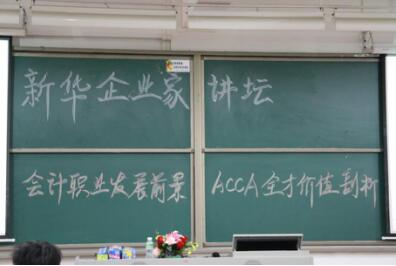 新华企业家 讲坛
会计职业发展前景 ACCA全才价值剖析